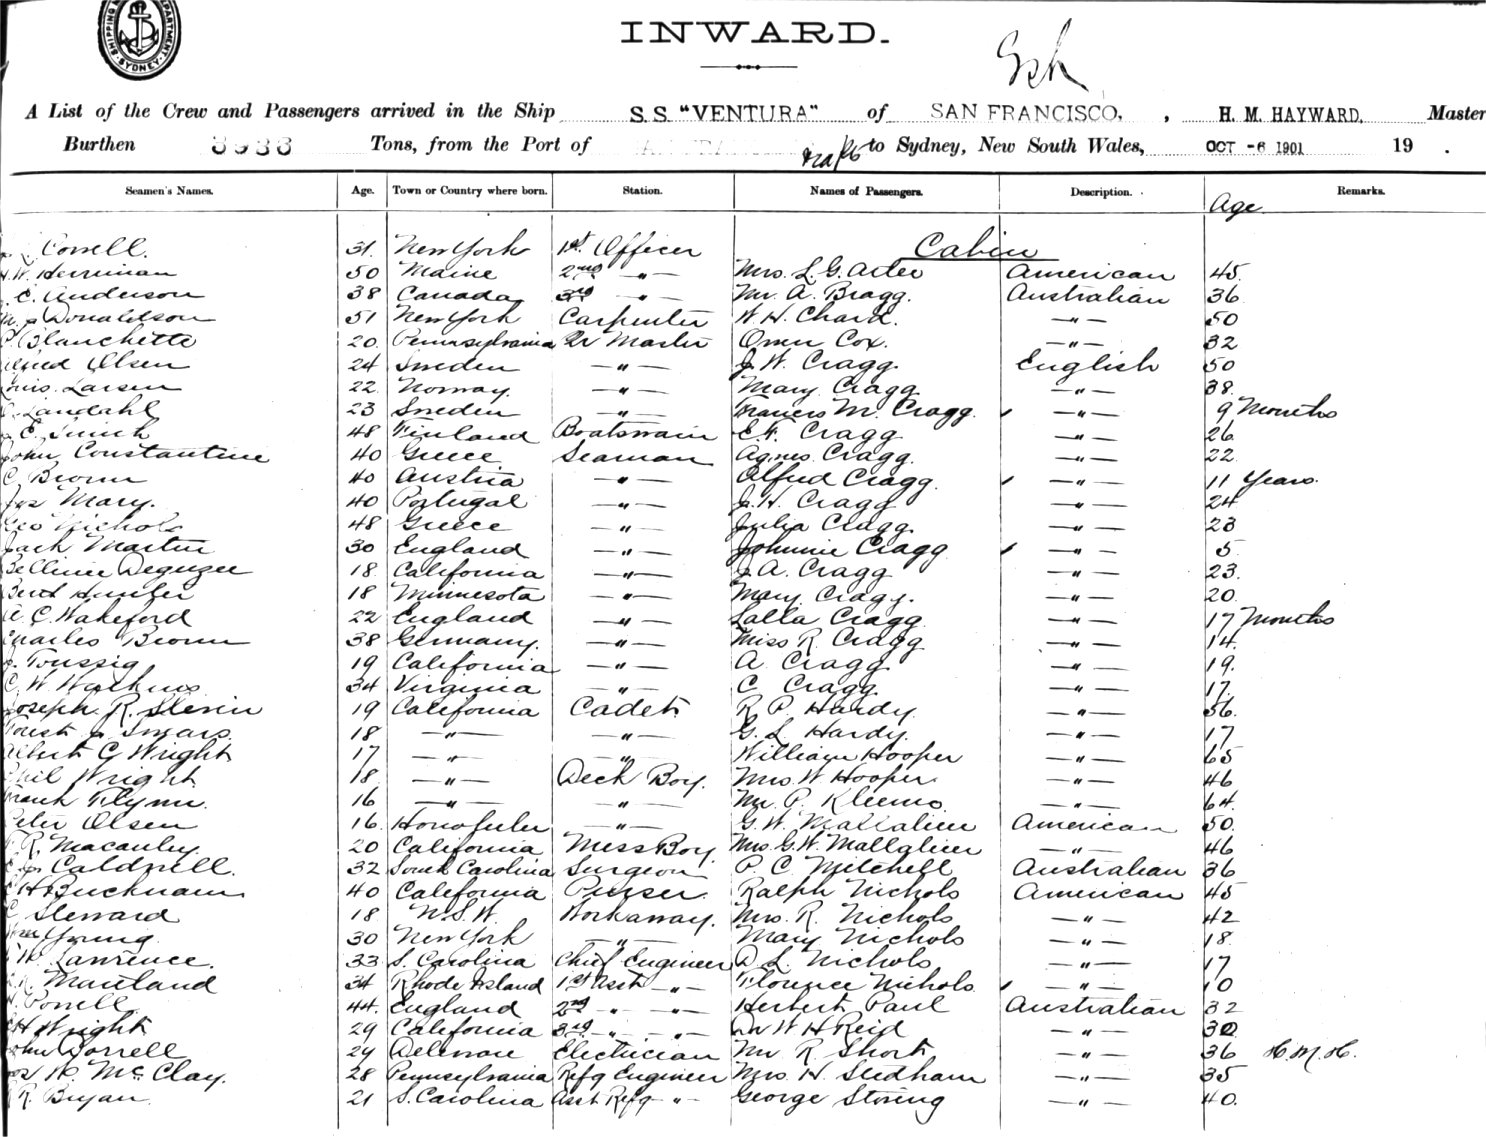 SHIPPING DEPARTMENT. SYDNEY.
INWARD.
A List of the Crew and Passengers arrived in the Ship S.S. "VENTURA" of SAN FRANCISCO, , H. M. HAYWARD, Master
Burthen Tons, from the Port of to Sydney, New South Wales, OCT -6 1901 19 .
Seamen's Names. Age. Town or Country where born. Station. Names of Passengers. Description. Age Remarks.
Cabin
31 New York 1st Officer
H.W. Herriman 50 Maine 2nd -"- Mrs. L. G. American 45
C. Anderson 38 Canada 3rd -"- Mr. A. Bragg. Australian 36
Donaldson 51 New York Carpenter W. H. Chard. -"- 50
Blanchette 20 Pennsylvania Qr Master Cox. -"- 32
Alfred Olsen 24 Sweden -"- J. W. Cragg. English 50
Louis Larsen 22 Norway. -"- Mary Cragg -"- 38
Landahl 23 Sweden -"- Francis M. Cragg. -"- 9 Months
48 Finland Boatswain E. F. Cragg -"- 26
John Constantine 40 Greece Seaman Agnes Cragg. -"- 22
C. Brown 40 Austria -"- Alfred Cragg. -"- 11 Years.
Jos Mary. 40 Portugal -"- J. H. Cragg -"- 24
Geo Nichols 48 Greece -"- Julia Cragg. -"- 23
Jack Martin 30 England -"- Johnnie Cragg -"- 5
18 California -"- J. A. Cragg -"- 23.
Bert Hunter 18 Minnesota -"- Mary Cragg. -"- 20
A. C. Wakeford 22 England -"- Lalla Cragg -"- 17 Months
Charles Brown 38 Germany. -"- Miss R. Cragg -"- 14
J. Toussig 19 California -"- A Cragg -"- 19.
C. W. 34 Virginia -"- C Cragg. -"- 17.
Joseph R. Slevin 19 California Cadet R. P. Hardy. -"- 56.
18 -"- -"- G. L. Hardy. -"- 17
Albert G Wright 17 -"- -"- William Hooper -"- 65
Phil Wright 18 -"- Deck Boy. Mrs. W Hooper. -"- 46
Frank Flynn. 16 -"- -"- Mr. P. -"- 64.
Peter Olsen 16 -"- G. W. American 50.
R. Macauley 20 California Mess Boy. Mrs. G. W. -"- 46
Caldwell. 32 South Carolina Surgeon P. C. Mitchell Australian 36
H Bucknam 40 California Purser. Ralph Nichols American 45
Steward 18 N.S.W. Workaway. Mrs. R. Nichols -"- 42
Young 30 New York -"- Mary Nichols -"- 18.
Lawrence. 33 S. Carolina Chief Engineer D. L. Nichols -"- 17
Maitland 34 Rhode Island 1st Asst -"- Florence Nichols -"- 10
44 England 2nd -"- -"- Herbert Paul Australian 32
H Wright 29 California 3rd -"- -"- Dr W H Reid -"- 30
John Dorrell 24 Delaware Electrician Mr R. Short. -"- 36 H.M.H.
Jos H. McClay. 28 Pennsylvania Refg Engineer Mrs. H. Stedham -"- 35
R. Bryan. 21 S. Carolina Asst Refg -"- George Storing -"- 40.